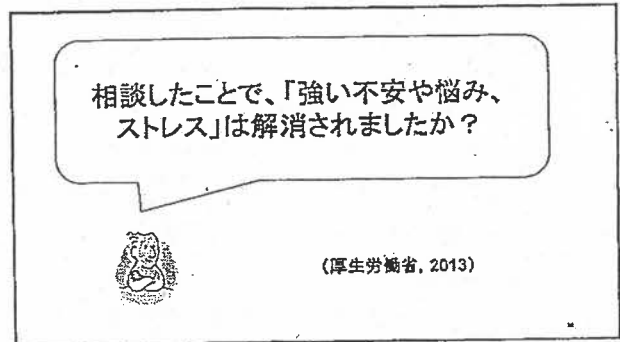 相談したことで、「強い不安や悩み、
ストレス」は解消されましたか？
(厚生労働省, 2013)